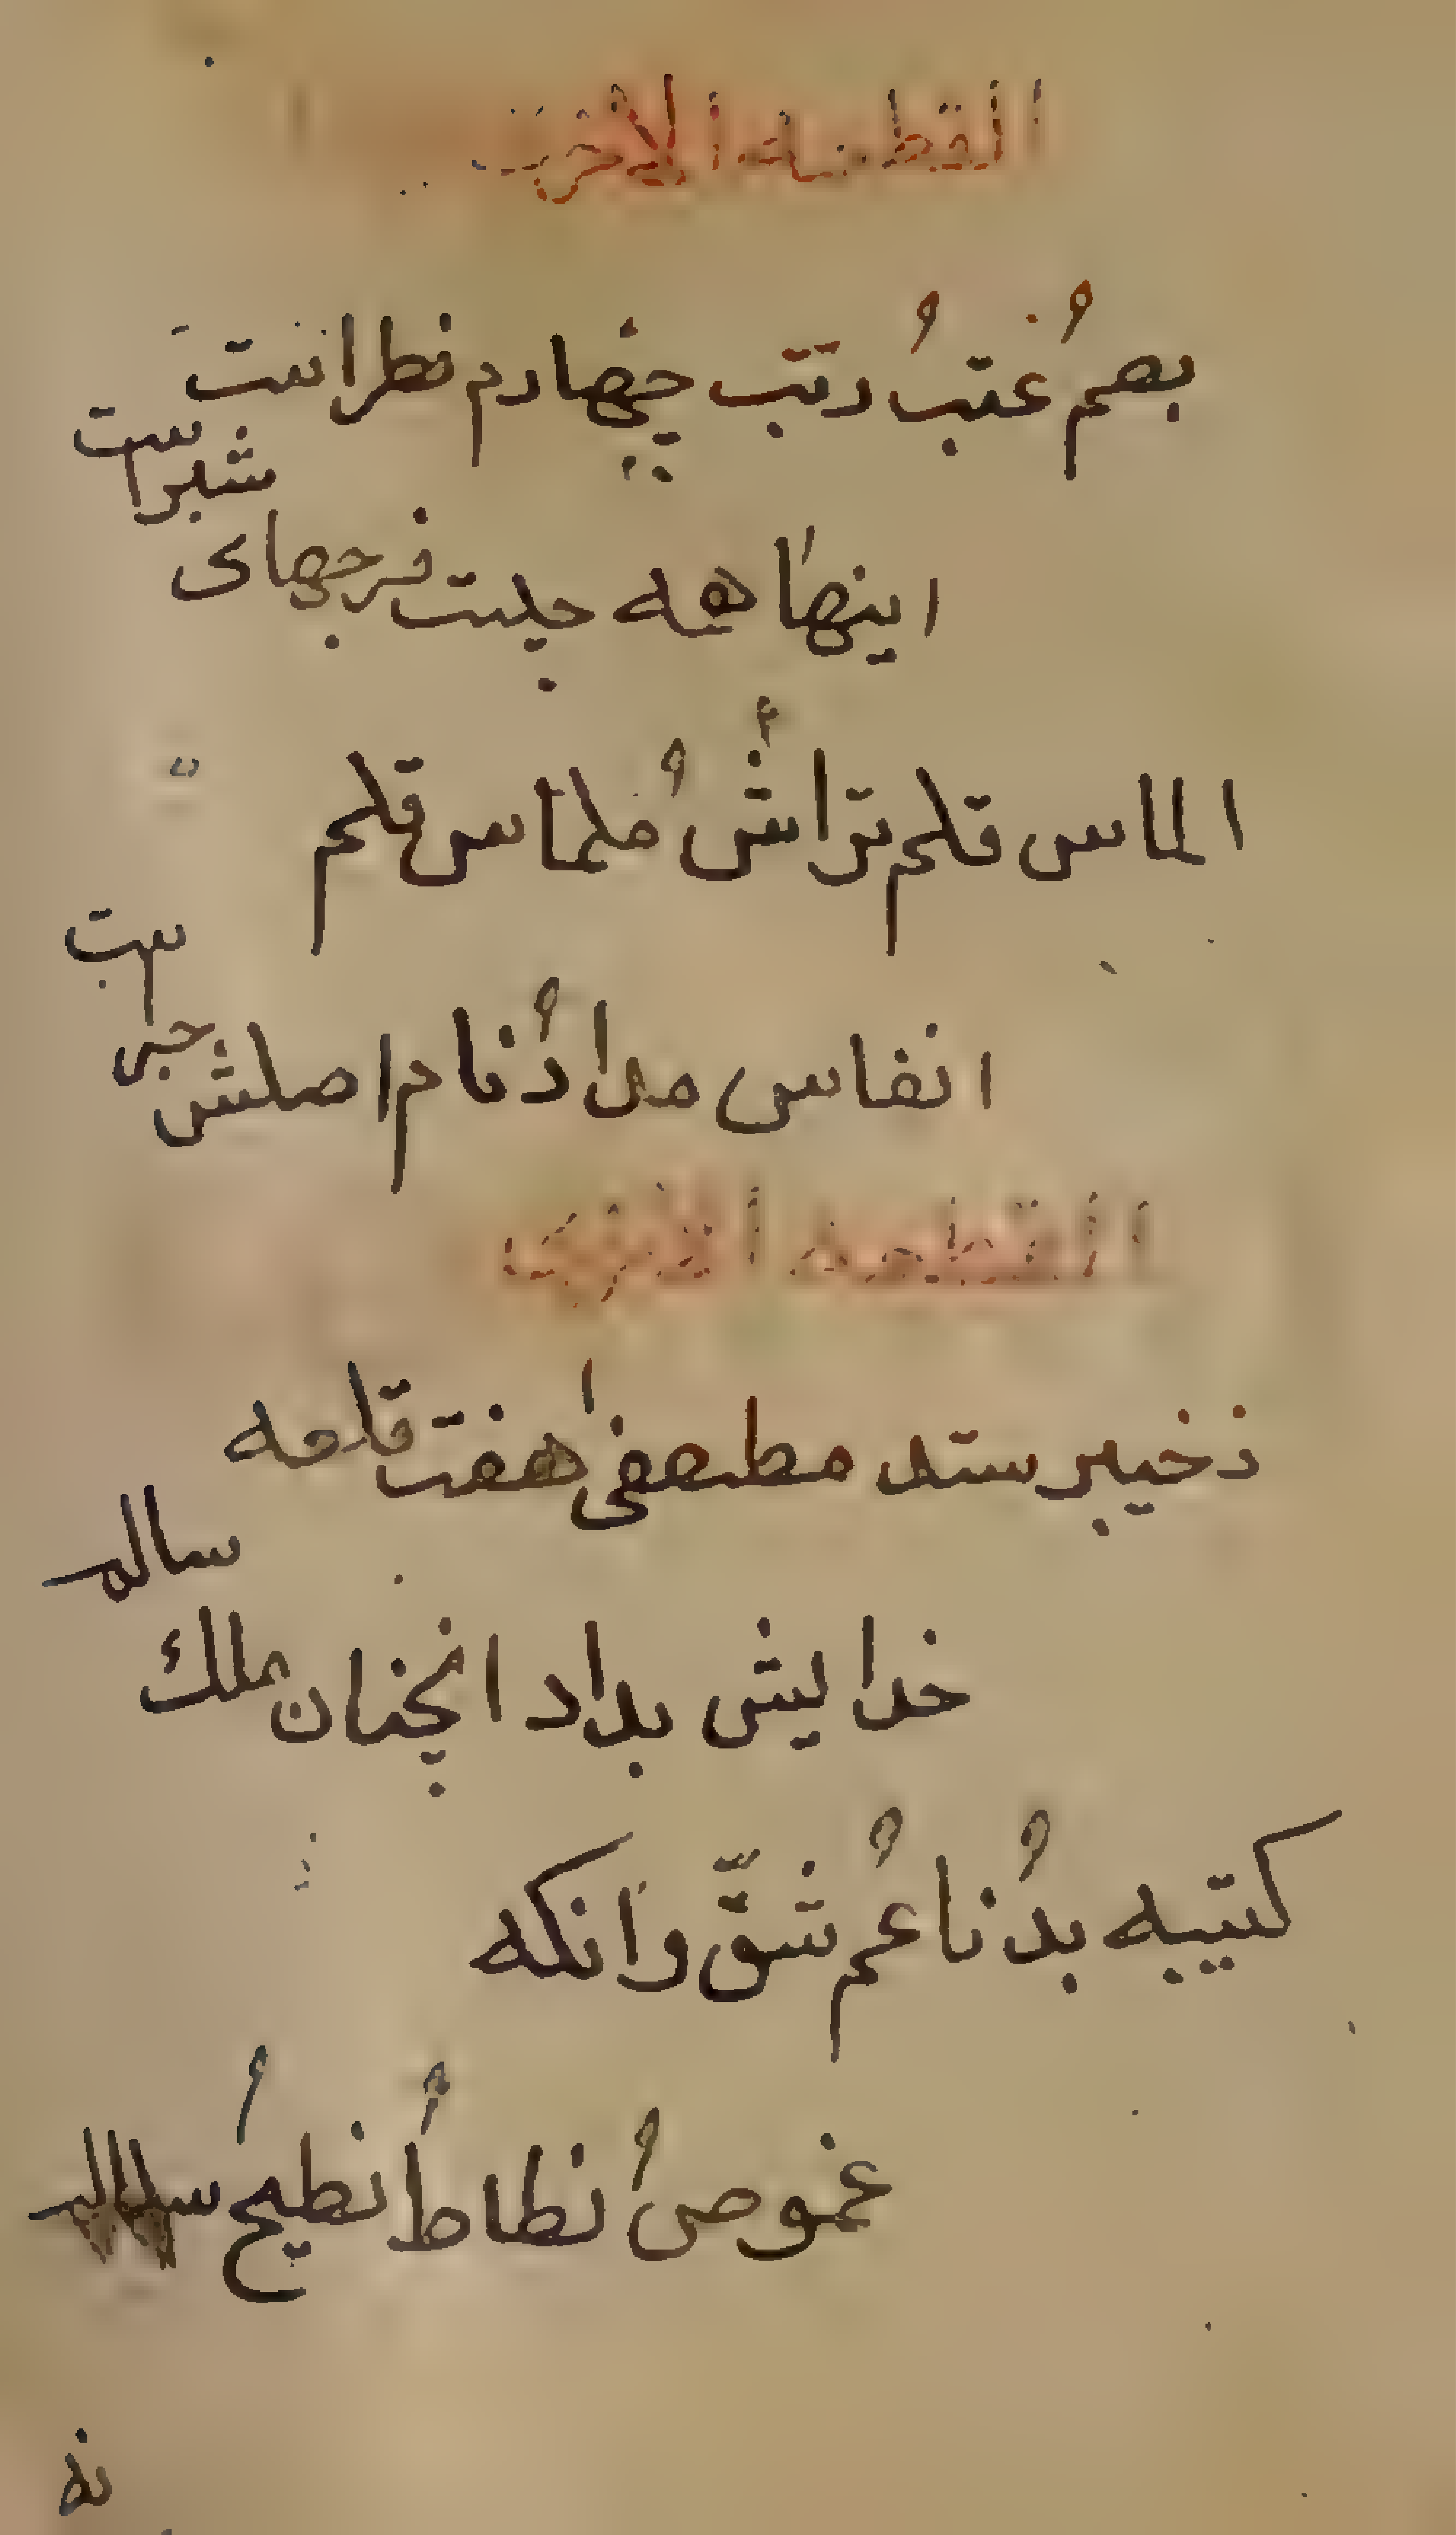 القطعه الاخرى
بصمُ عُتبُ رتب چهارم فطر است
اینها همه چیست فرجهای شبراست
الماس قلم تراش مُلماس قلم
انفاس مدادُ نام اصلش حبراست
القطعه الاخرى
ذخیبر ستد مصطفیٰ هفت قلعه
خدایش بداد انچنان ملك ساله
کتیبه بدُ ناعمُ شقّ وانکه
غموصُ نطاطُ نطیحُ سلاله